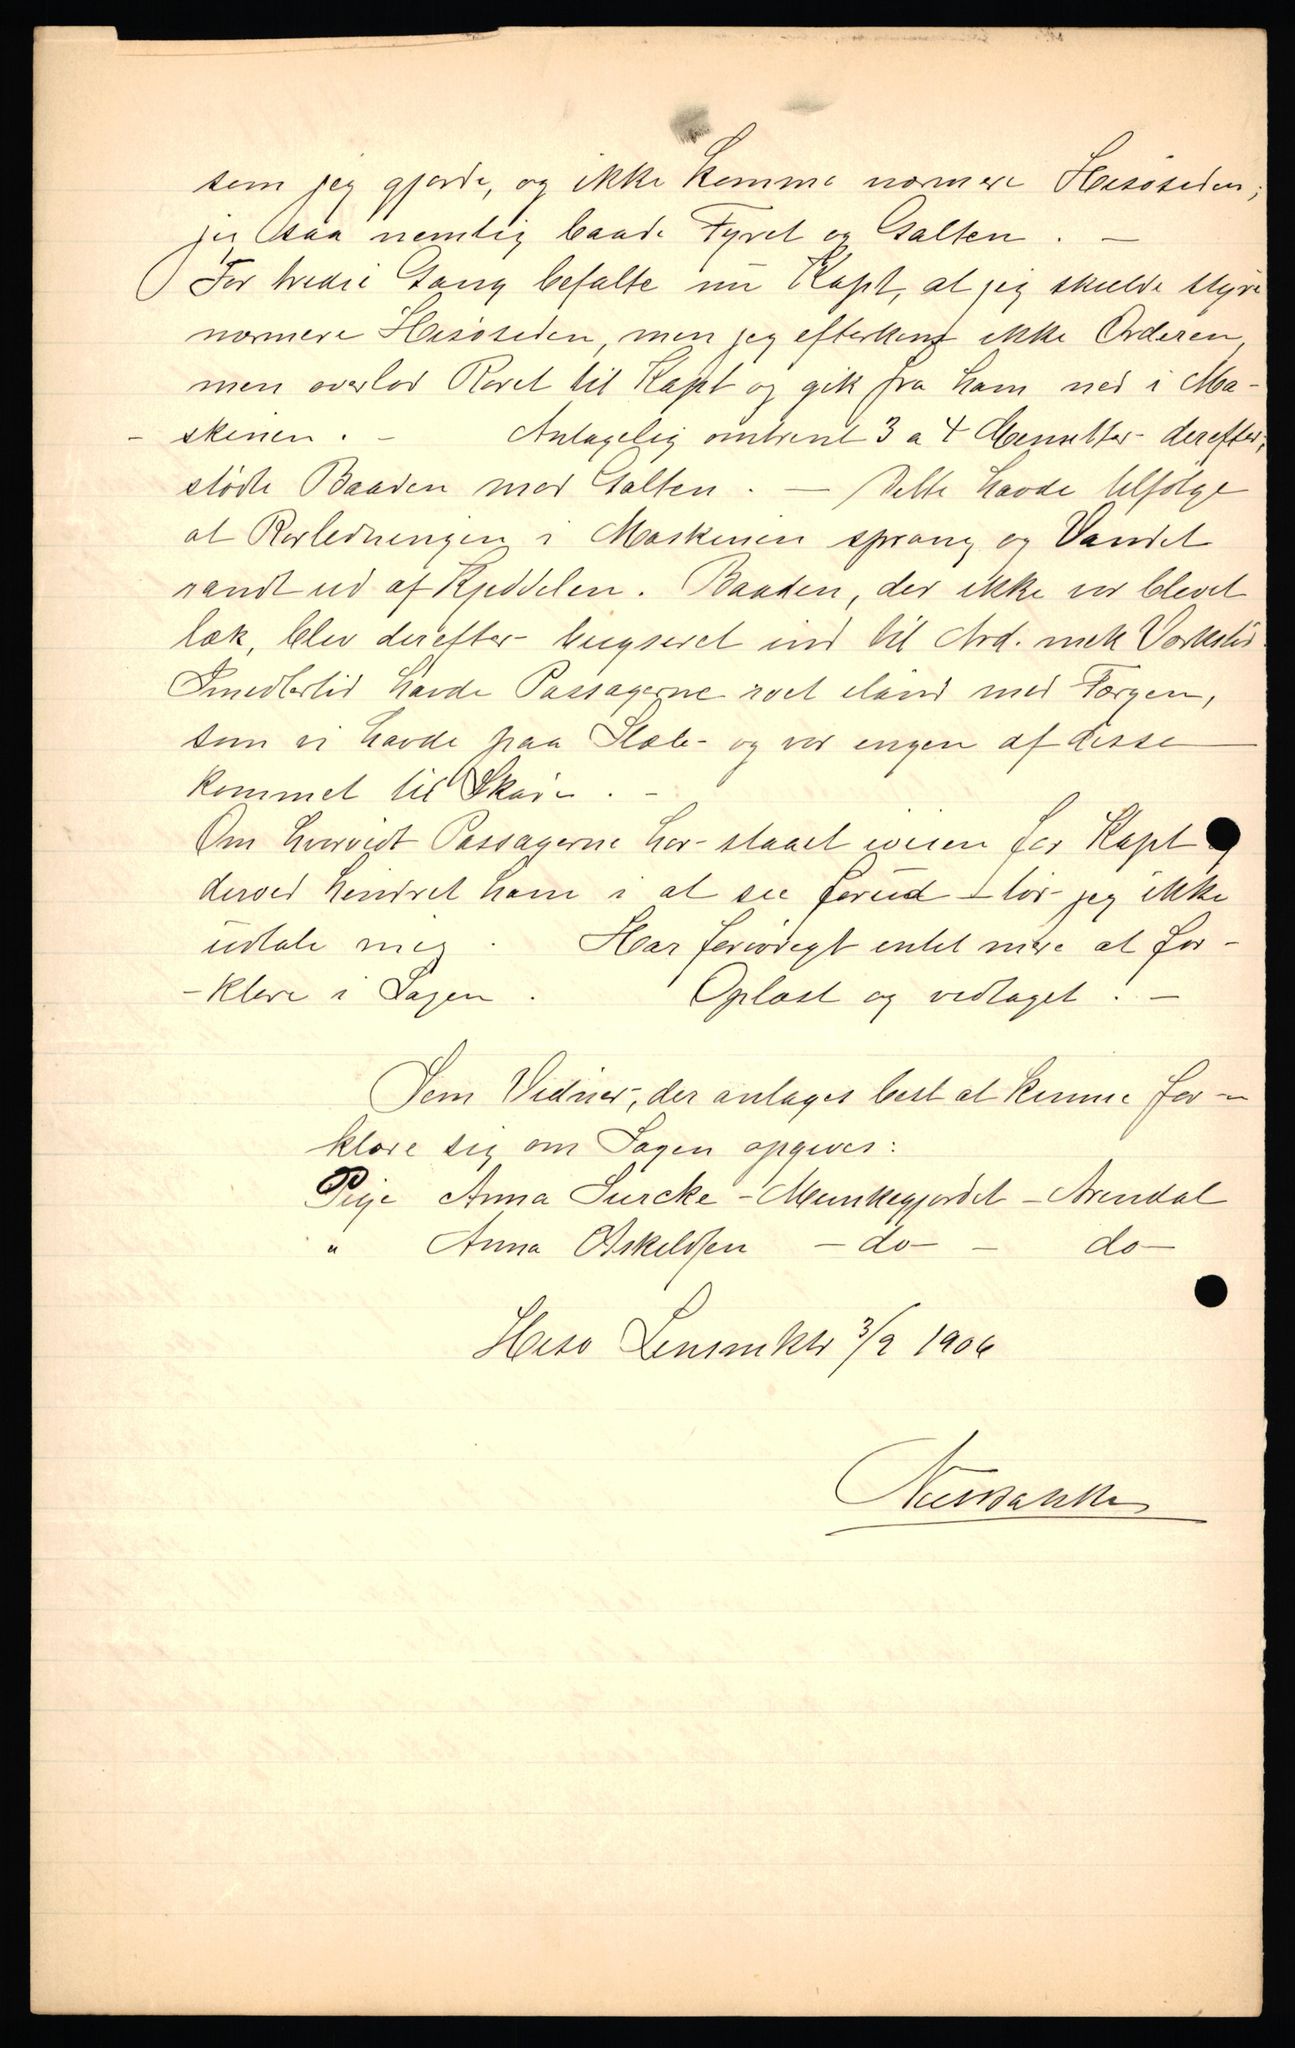 som jeg gjorde, og ikke komme nærmere Hisøsiden;
jeg saa nemlig baade Fyret og Galten. –
For tredie Gang befalte nu Kapt, at jeg skulde styre
nærmere Hisøsiden, men jeg efterkom ikke Orderen,
men overlod Roret til Kapt og gik fra ham ned i Ma-
- skinen. – Antagelig omtrent 3 a 4 Menutter derefter,
stødte Baaden mod Galten. – Dette havde tilfølge
at Rørledningen i Maskinen sprang og Vandet
randt ud af Kjeddelen. Baaden, der ikke var blevet
læk, blev derefter bugseret ind til Ard. mek Værksted.
Imedlertid havde Passagerne roet iland med Færgen,
som vi havde paa Slæb – og var ingen af disse
kommet til Skade. –
Om hvorvidt Passagerne har staaet iveien for Kapt og
derved hindret ham i at see forud – tør jeg ikke
udtale mig. Har forøvrigt intet mere at for-
- klare i Sagen. Oplæst og vedtaget. –
Som Vidner, der antages best at kunne for-
klare sig om Sagen opgives:
Pige Anna Surcke – Munkegjordet – Arendal
" Anna Askeldsen – do – – do –
Hisø Lensmktr 3/9 1906